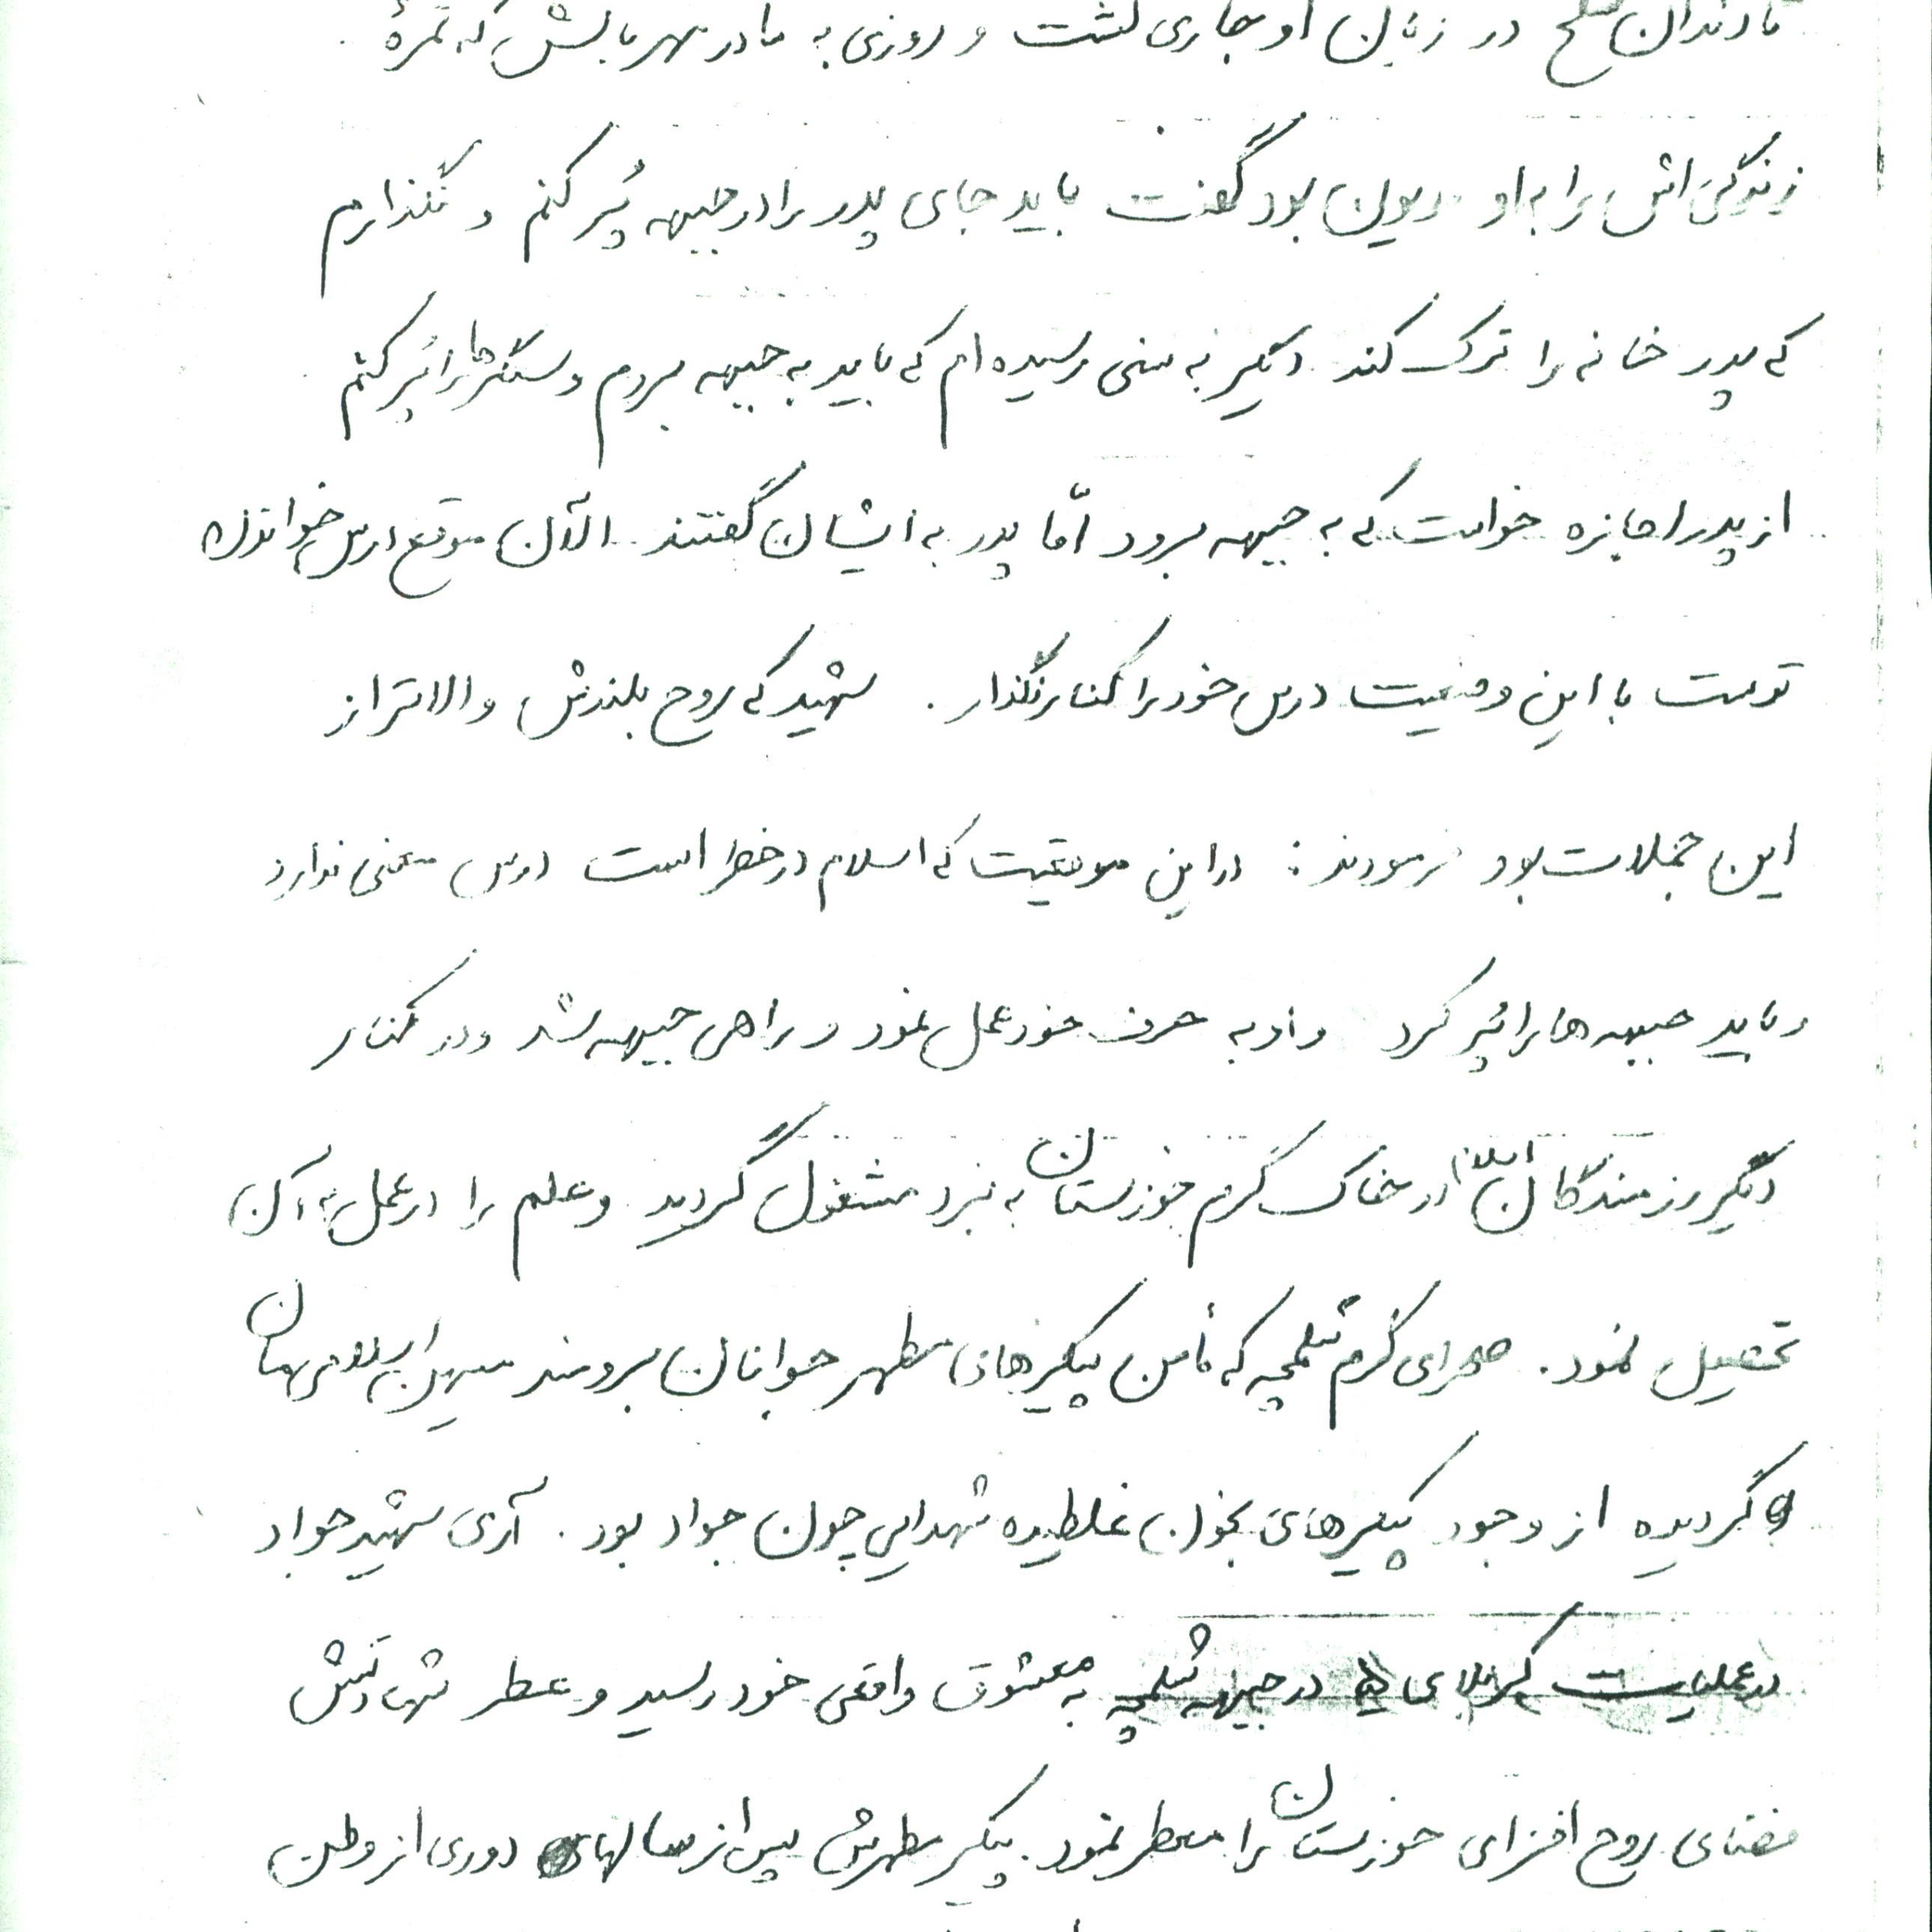 در زبان او جاری گشت و روزی به مادر مهربانش که ثمرهٔ
زندگی اش را به او مدیون بود گفت باید جای پدر را در جبهه پُر کنم و نگذارم
که پدر خانه را ترک کند دیگر به سنی رسیده ام که باید به جبهه بروم و سنگرها را پُر کنم
از پدر اجازه خواست که به جبهه برود امّا پدر به ایشان گفتند الآن موقع درس خواندن
توست با این وضعیت درس خود را کنار نگذار. شهید که روح بلندش والاتر از
این جملات بود فرمودند: در این موقعیت که اسلام در خطر است درس معنی ندارد
و باید جبهه ها را پُر کرد و او به حرف خود عمل نمود و راهی جبهه شد و در کنار
دیگر رزمندگان اسلام در خاک گرم خوزستان به نبرد مشغول گردید و علم را در عمل به آن
تحصیل نمود. صحرای گرم شلمچه که مأمن پیکرهای مطهر جوانان برومند میهن اسلامی مان
گردیده از وجود پیکرهای بخون غلطیده شهدایی چون جواد بود. آری شهید جواد
در عملیات کربلای ۵ در جبهه شلمچه به معشوق واقعی خود رسید و عطر شهادتش
فضای روح افزای خوزستان را معطر نمود. پیکر مطهرش پس از سالهای دوری از وطن